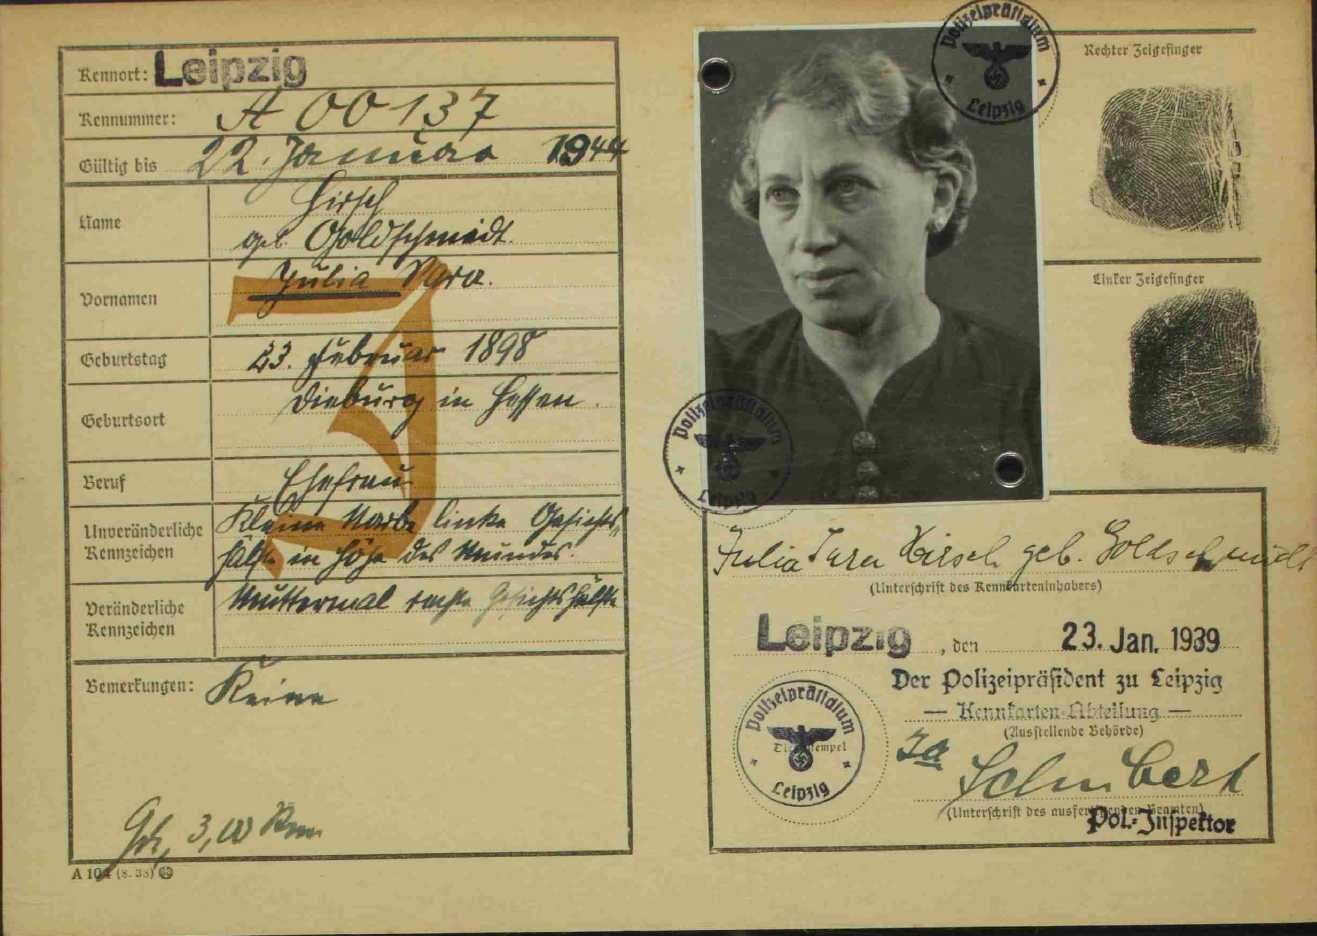 Kennort: Leipzig
Kennummer: A 00137
Gültig bis 22. Januar 1944
Name
Hirsch
geb. Goldschmidt.
Vornamen
Julia Sara.
J
Geburtstag 23. Februar 1898
Geburtsort
Dieburg in Hessen.
Beruf
Ehefrau
Unveränderliche Kennzeichen
Kleine Narbe linke Gesichts-
hälfte in Höhe des Mundes.
Veränderliche Kennzeichen
Muttermal rechte Gesichtshälfte
Bemerkungen: Keine
3,00 Rm
A 104 (8. 38)
Polizeipräsidium
Leipzig
Rechter Zeigefinger
Linker Zeigefinger
Polizeipräsidium
Leipzig
Julia Sara Hirsch geb. Goldschmidt
(Unterschrift des Kennkarteninhabers)
Leipzig, den 23. Jan. 1939
Der Polizeipräsident zu Leipzig
— Kennkarten-Abteilung —
(Ausstellende Behörde)
Polizeipräsidium
Leipzig
Schubert
(Unterschrift des ausfertigenden Beamten)
Pol.-Inspektor